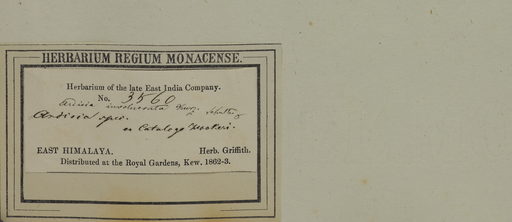 HERBARIUM REGIUM MONACENSE.
Herbarium of the late East India Company.
No. 3560
Ardisia involucrata Kurz.
Ardisia spec.
ex Catalogo Hookeri.
EAST HIMALAYA. Herb. Griffith.
Distributed at the Royal Gardens, Kew, 1862-3.